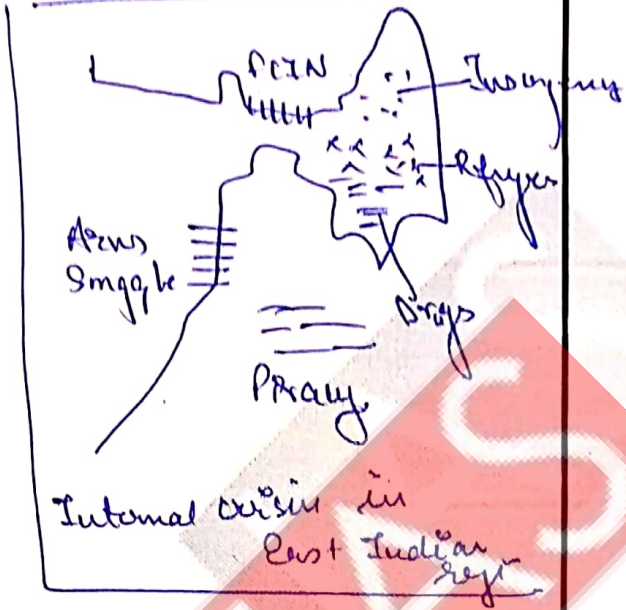 FCIN
Insurgency
Refugees
Arms
Smggle
Drugs
Piracy
Internal crisis in
East Indian
regi